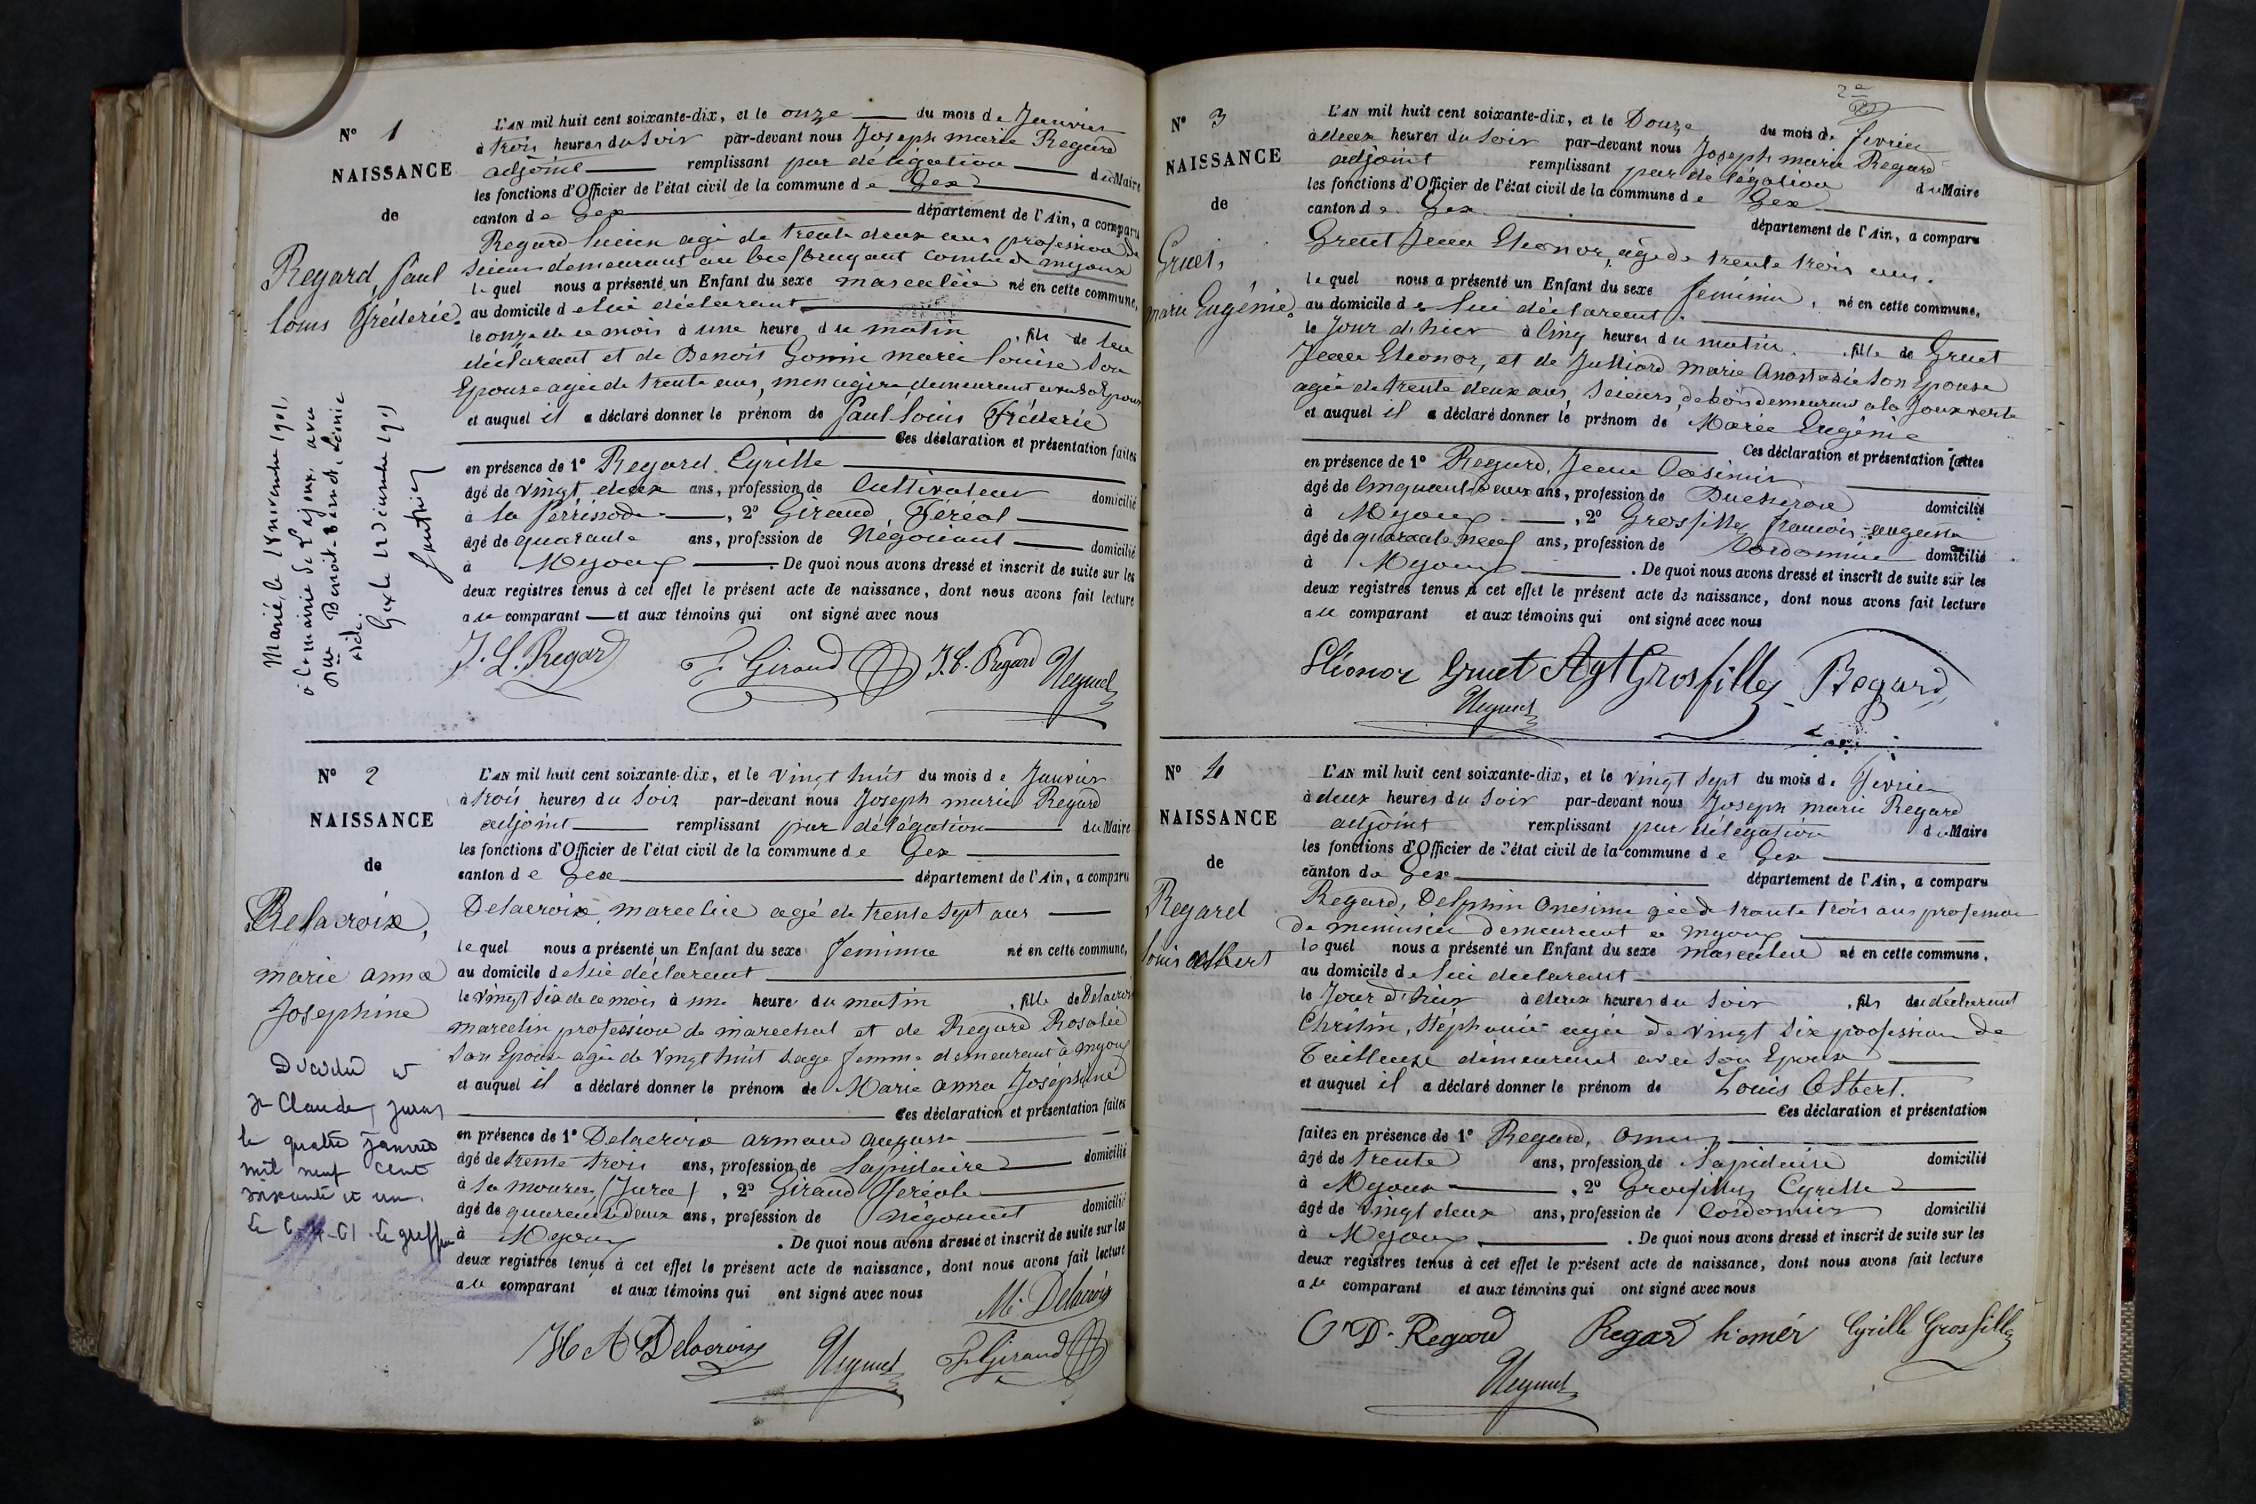 N° 1
NAISSANCE
de
Regard, Paul
Louis Fréderic.
Marié, le
novembre 1901,
à la mairie de Lajoux, avec
Benoit
Gex le décembre 1901
L'AN mil huit cent soixante-dix, et le onze du mois de Janvier
à trois heures du Soir par-devant nous Joseph marie Regard
adjoint remplissant par délégation du Maire
les fonctions d'Officier de l'état civil de la commune de Gex
canton de Gex département de l'Ain, a comparu
Regard Lucien agé de trente deux ans profession de
Scieur demeurant au commune de myoux
lequel nous a présenté un Enfant du sexe masculin né en cette commune,
au domicile de lui déclarant
le onze de ce mois à une heure du matin, fils de lui
déclarant et de Benoit Gonin marie Louise Son
Epouse agée de trente ans, menagère, demeurant avec Son Epoux
et auquel il a déclaré donner le prénom de Paul Louis Fréderic
Ces déclaration et présentation faites
en présence de 1° Regard, Cyrille
âgé de vingt deux ans, profession de Cultivateur domicilié
à la , 2° Giraud, Féréol
âgé de quarante ans, profession de Négociant domicilié
à Myoux. De quoi nous avons dressé et inscrit de suite sur les
deux registres tenus à cet effet le présent acte de naissance, dont nous avons fait lecture
au comparant et aux témoins qui ont signé avec nous
J. L. Regard F. Giraud J. C. Regard
N° 2
NAISSANCE
de
Delacroix,
marie anna
Josephine
Décédée à
St Claude, Jura,
le quatre Janvier
mil neuf cent
soixante et un.
Le greffier
L'AN mil huit cent soixante-dix, et le vingt huit du mois de Janvier
à trois heures du Soir par-devant nous Joseph marie Regard
adjoint remplissant par délégation du Maire
les fonctions d'Officier de l'état civil de la commune de Gex
canton de Gex département de l'Ain, a comparu
Delacroix, marcelin agé de trente sept ans
lequel nous a présenté un Enfant du sexe feminin né en cette commune,
au domicile de lui déclarant
le vingt six de ce mois à une heure du matin, fille de Delacroix
marcelin profession de marechal et de Regard Rosalie
Son Epouse agée de vingt huit sage femme demeurant à myoux
et auquel il a déclaré donner le prénom de Marie anna Joséphine
Ces déclaration et présentation faites
en présence de 1° Delacroix armand auguste
âgé de trente trois ans, profession de Lapidaire domicilié
à la mouree (Jura), 2° Giraud Feréole
âgé de quarante deux ans, profession de négociant domicilié
à Myoux. De quoi nous avons dressé et inscrit de suite sur les
deux registres tenus à cet effet le présent acte de naissance, dont nous avons fait lecture
au comparant et aux témoins qui ont signé avec nous
M. Delacroix
H A Delacroix F. Giraud
N° 3
NAISSANCE
de
Gruet,
marie Eugénie.
L'AN mil huit cent soixante-dix, et le Douze du mois de fevrier
à deux heures du Soir par-devant nous Joseph marie Regard
adjoint remplissant par délégation du Maire
les fonctions d'Officier de l'état civil de la commune de Gex
canton de Gex département de l'Ain, a comparu
Gruet Jean Eleonor, agé de trente trois ans.
lequel nous a présenté un Enfant du sexe feminin, né en cette commune,
au domicile de lui déclarant.
le Jour d'hier à Cinq heures du matin, fille de Gruet
Jean Eleonor, et de Julliard marie Anastasie Son Epouse
agée de trente deux ans, Scieurs de bois demeurant a la Joux verte
et auquel il a déclaré donner le prénom de Marie Eugénie
Ces déclaration et présentation faites
en présence de 1° Regard, Jean Casimir
âgé de Cinquante deux ans, profession de Bucheron domicilié
à Myoux, 2° Grosfilley francois auguste
âgé de quarante neuf ans, profession de Cordonnier domicilié
à Myoux. De quoi nous avons dressé et inscrit de suite sur les
deux registres tenus à cet effet le présent acte de naissance, dont nous avons fait lecture
au comparant et aux témoins qui ont signé avec nous
Eléonor Gruet Agt Grosfilley Regard
N° 4
NAISSANCE
de
Regard
Louis Albert
L'AN mil huit cent soixante-dix, et le vingt Sept du mois de fevrier
à deux heures du Soir par-devant nous Joseph marie Regard
adjoint remplissant par délégation du Maire
les fonctions d'Officier de l'état civil de la commune de Gex
canton de Gex département de l'Ain, a comparu
Regard, Delphin Onesime agé de trente trois ans profession
de menuisier demeurant a myoux
lequel nous a présenté un Enfant du sexe masculin né en cette commune,
au domicile de lui declarant
le Jour d'hier à deux heures du Soir, fils du déclarant
Christin, Stéphanie agée de vingt Six profession de
Tailleuse demeurant avec Son Epoux
et auquel il a déclaré donner le prénom de Louis Albert.
Ces déclaration et présentation
faites en présence de 1° Regard, Omer
âgé de trente ans, profession de Lapidaire domicilié
à Myoux, 2° Grosfilley Cyrille
âgé de Vingt deux ans, profession de Cordonnier domicilié
à Myoux. De quoi nous avons dressé et inscrit de suite sur les
deux registres tenus à cet effet le présent acte de naissance, dont nous avons fait lecture
au comparant et aux témoins qui ont signé avec nous
O. D. Regard Regard homér Cyrille Grosfilley